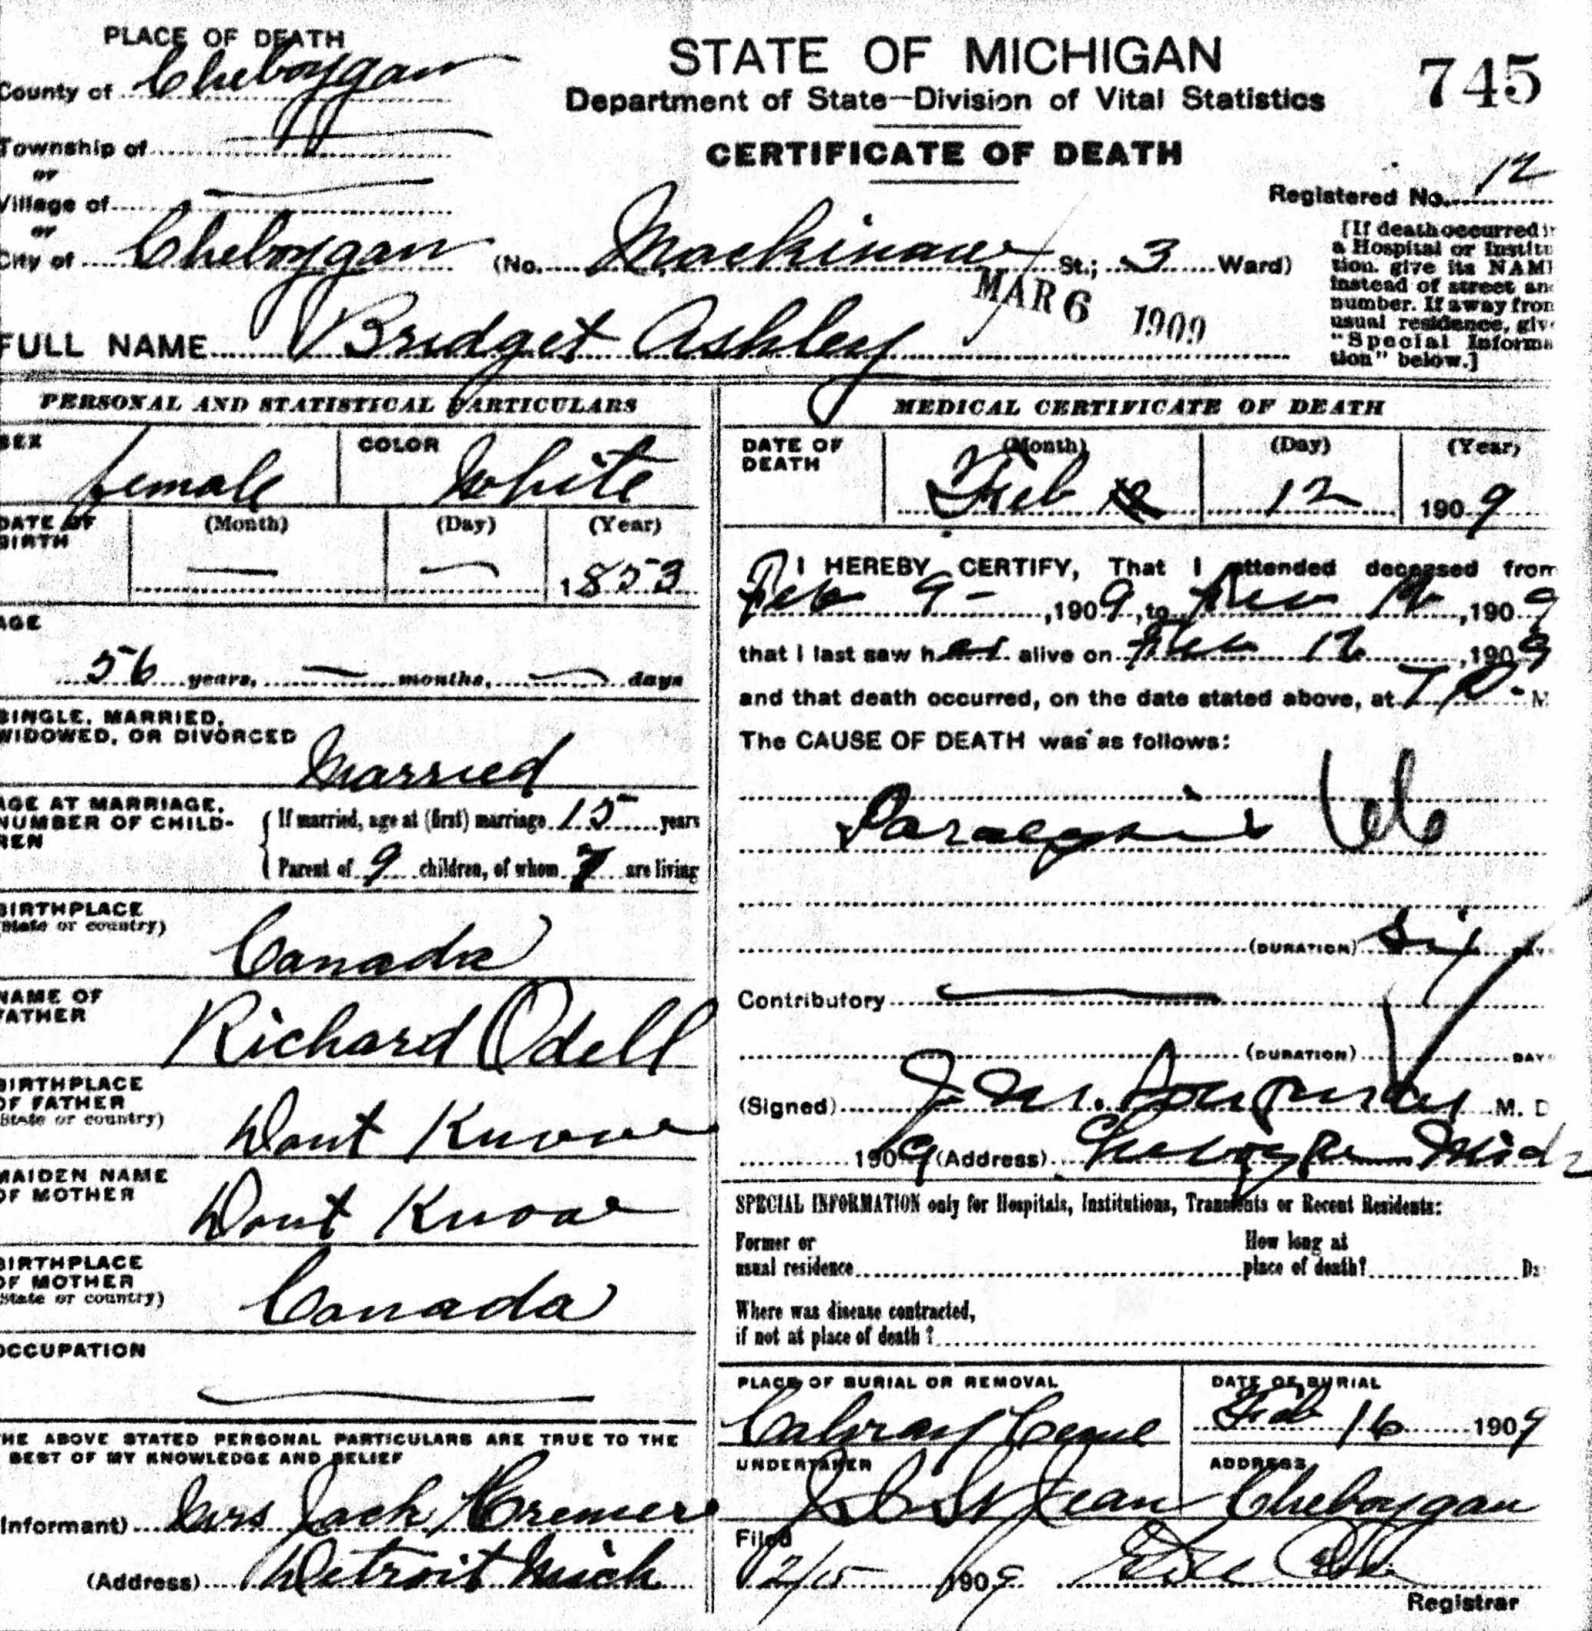 PLACE OF DEATH
County of Cheboygan
Township of
or
Village of
or
City of Cheboygan (No. Mackinaw St.; 3 Ward)
STATE OF MICHIGAN
Department of State—Division of Vital Statistics
CERTIFICATE OF DEATH
745
Registered No. 12
[If death occurred in
a Hospital or Institu
tion. give its NAME
instead of street and
number. If away from
usual residence, give
"Special Informa
tion" below.]
MAR 6 1909
FULL NAME Bridget Ashley
PERSONAL AND STATISTICAL PARTICULARS
SEX female COLOR White
DATE OF BIRTH (Month) (Day) (Year)
1853
AGE
56 years, months, days
SINGLE, MARRIED,
WIDOWED, OR DIVORCED
Married
AGE AT MARRIAGE,
NUMBER OF CHILD-
REN
If married, age at (first) marriage 15 years
Parent of 9 children, of whom 7 are living
BIRTHPLACE
(State or country)
Canada
NAME OF
FATHER
Richard Odell
BIRTHPLACE
OF FATHER
(State or country)
Dont Know
MAIDEN NAME
OF MOTHER
Dont Know
BIRTHPLACE
OF MOTHER
(State or country)
Canada
OCCUPATION
THE ABOVE STATED PERSONAL PARTICULARS ARE TRUE TO THE
BEST OF MY KNOWLEDGE AND BELIEF
(Informant) Mrs Jack Cremer
(Address) Detroit Mich
MEDICAL CERTIFICATE OF DEATH
DATE OF
DEATH
(Month) (Day) (Year)
Feb 12 1909
I HEREBY CERTIFY, That I attended deceased from
Feb 9 - , 1909, to Feb 12, 1909
that I last saw her alive on Feb 12, 1909
and that death occurred, on the date stated above, at 7 P. M
The CAUSE OF DEATH was as follows:
(DURATION) six
Contributory
(DURATION) DAYS
(Signed) J. M. M. D
1909 (Address) Cheboygan Mich
SPECIAL INFORMATION only for Hospitals, Institutions, Transients or Recent Residents:
Former or
usual residence
How long at
place of death? Da
Where was disease contracted,
if not at place of death?
PLACE OF BURIAL OR REMOVAL
Calvary Ceme
DATE OF BURIAL
Feb 16 1909
UNDERTAKER
St Jean
ADDRESS
Cheboygan
Filed
2/15 1909
Registrar